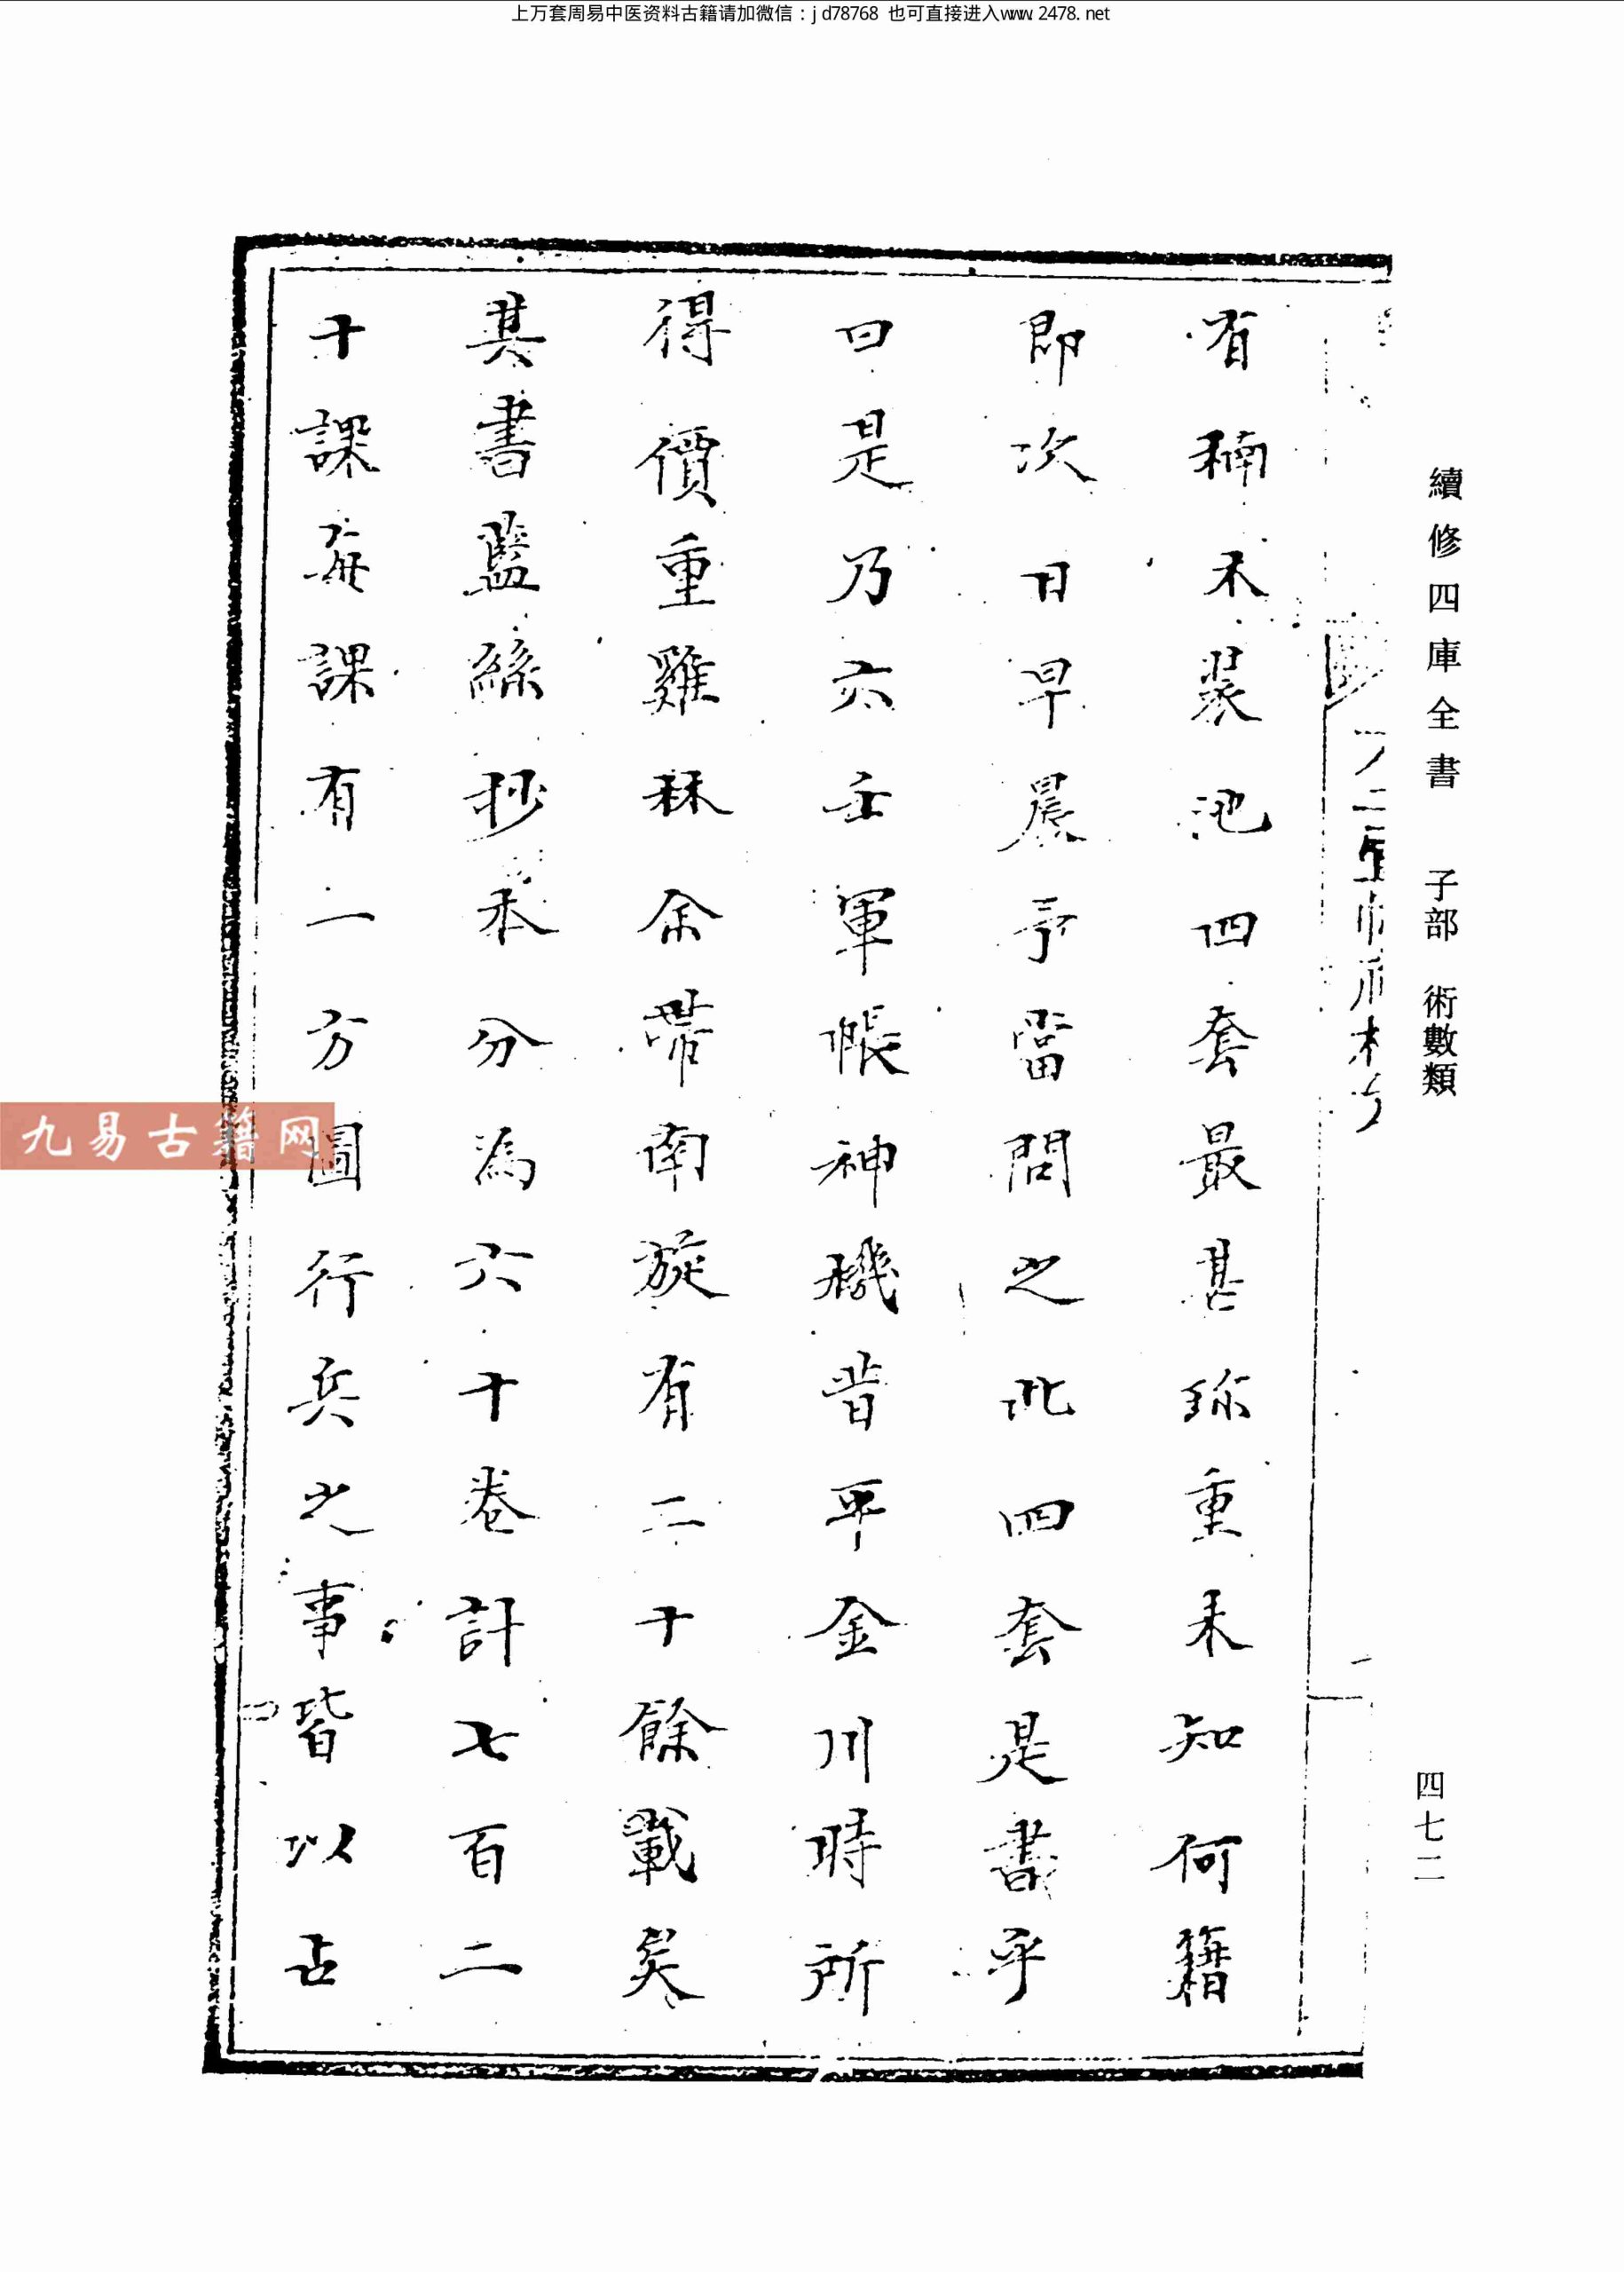 上万套周易中医资料古籍请加微信：jd78768 也可直接进入www.2478.net
續修四庫全書 子部 術數類
四七二
有楠木裝池四套最甚珍重未知何籍
即次日早晨予當問之此四套是書乎
曰是乃六壬軍帳神機昔平金川時所
得價重雞林余帶南旋有二十餘載矣
其書藍絲抄本分為六十卷計七百二
十課每課有一方圖行兵之事皆以占
九易古籍网